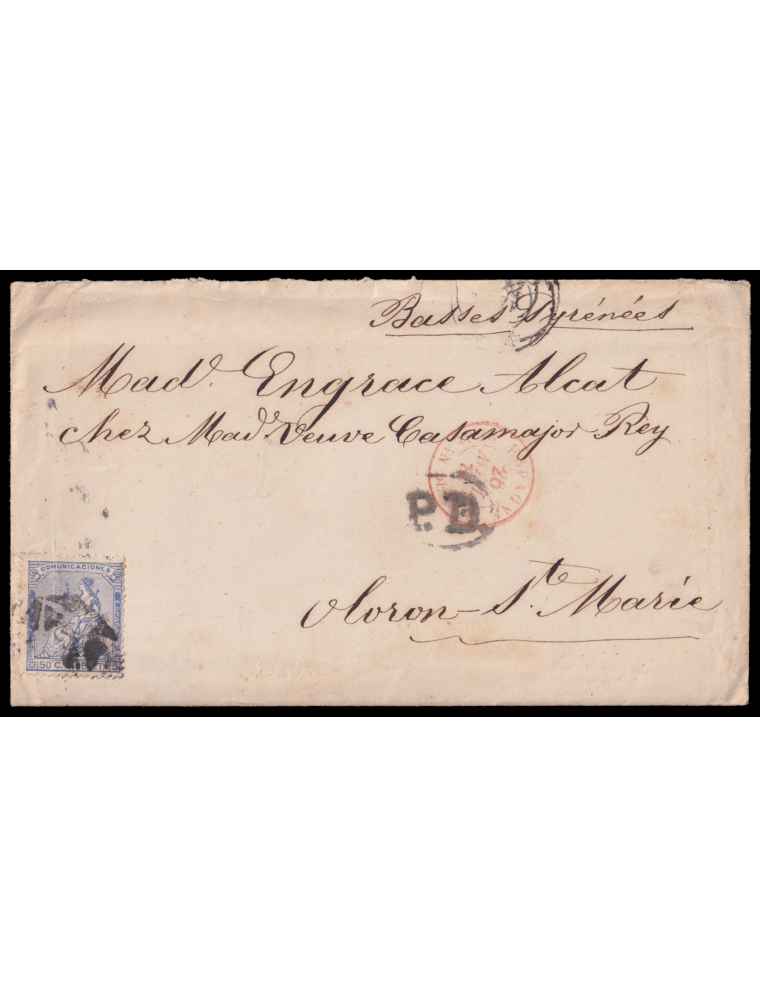 Basses Pyrénées
Mad.e Engrace Alcat
chez Mad.e Veuve Casamajor Rey
ESPAGNE
26
P.D.
Oloron-Ste Marie
COMUNICACIONES
50 C.